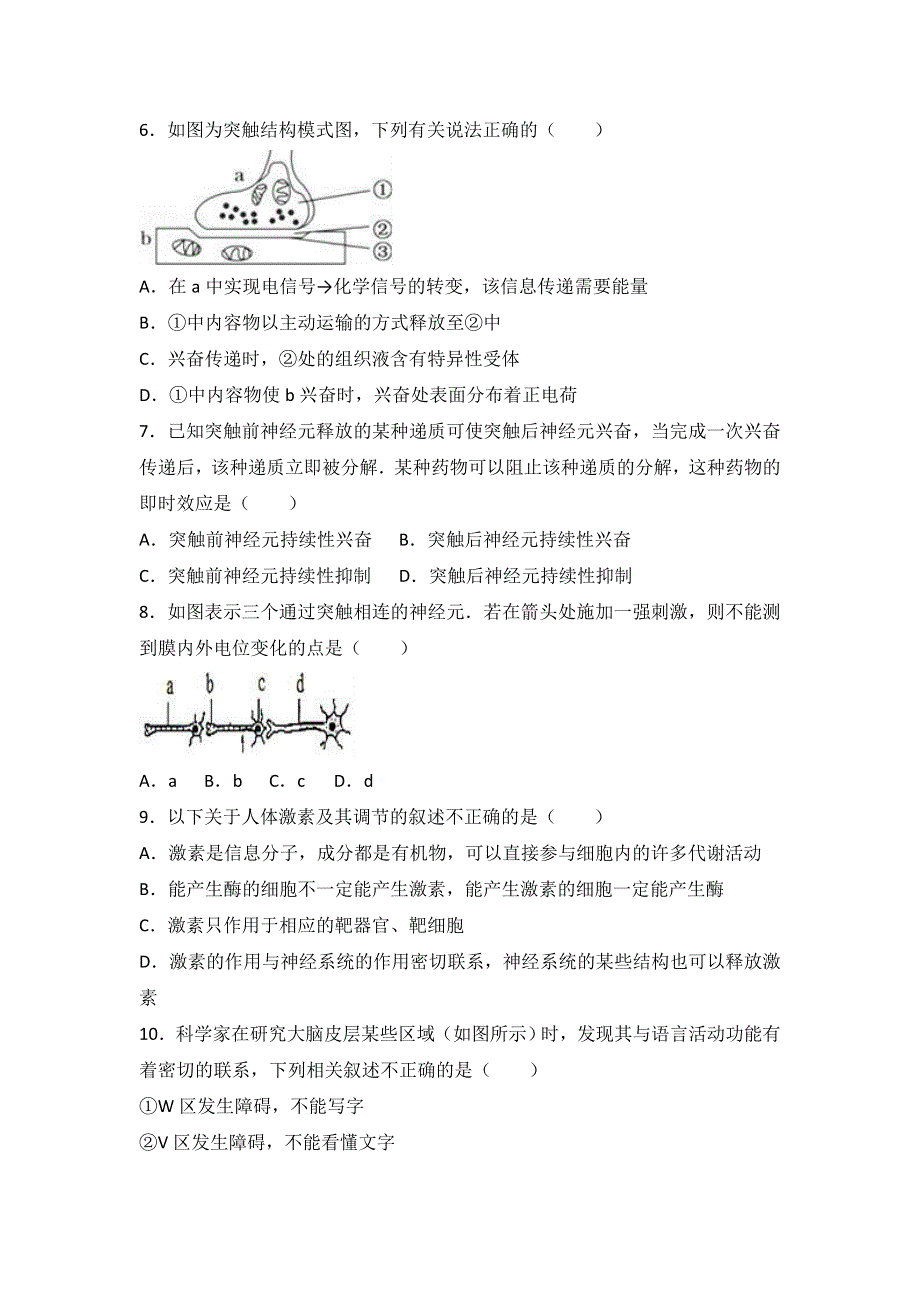 6．如图为突触结构模式图，下列有关说法正确的（　　）
a
①
②
b
③
A．在 a 中实现电信号→化学信号的转变，该信息传递需要能量
B．①中内容物以主动运输的方式释放至②中
C．兴奋传递时，②处的组织液含有特异性受体
D．①中内容物使 b 兴奋时，兴奋处表面分布着正电荷
7．已知突触前神经元释放的某种递质可使突触后神经元兴奋，当完成一次兴奋
传递后，该种递质立即被分解．某种药物可以阻止该种递质的分解，这种药物的
即时效应是（　　）
A．突触前神经元持续性兴奋　B．突触后神经元持续性兴奋
C．突触前神经元持续性抑制　D．突触后神经元持续性抑制
8．如图表示三个通过突触相连的神经元．若在箭头处施加一强刺激，则不能测
到膜内外电位变化的点是（　　）
a b c d
A．a　B．b　C．c　D．d
9．以下关于人体激素及其调节的叙述不正确的是（　　）
A．激素是信息分子，成分都是有机物，可以直接参与细胞内的许多代谢活动
B．能产生酶的细胞不一定能产生激素，能产生激素的细胞一定能产生酶
C．激素只作用于相应的靶器官、靶细胞
D．激素的作用与神经系统的作用密切联系，神经系统的某些结构也可以释放激
素
10．科学家在研究大脑皮层某些区域（如图所示）时，发现其与语言活动功能有
着密切的联系，下列相关叙述不正确的是（　　）
①W 区发生障碍，不能写字
②V 区发生障碍，不能看懂文字